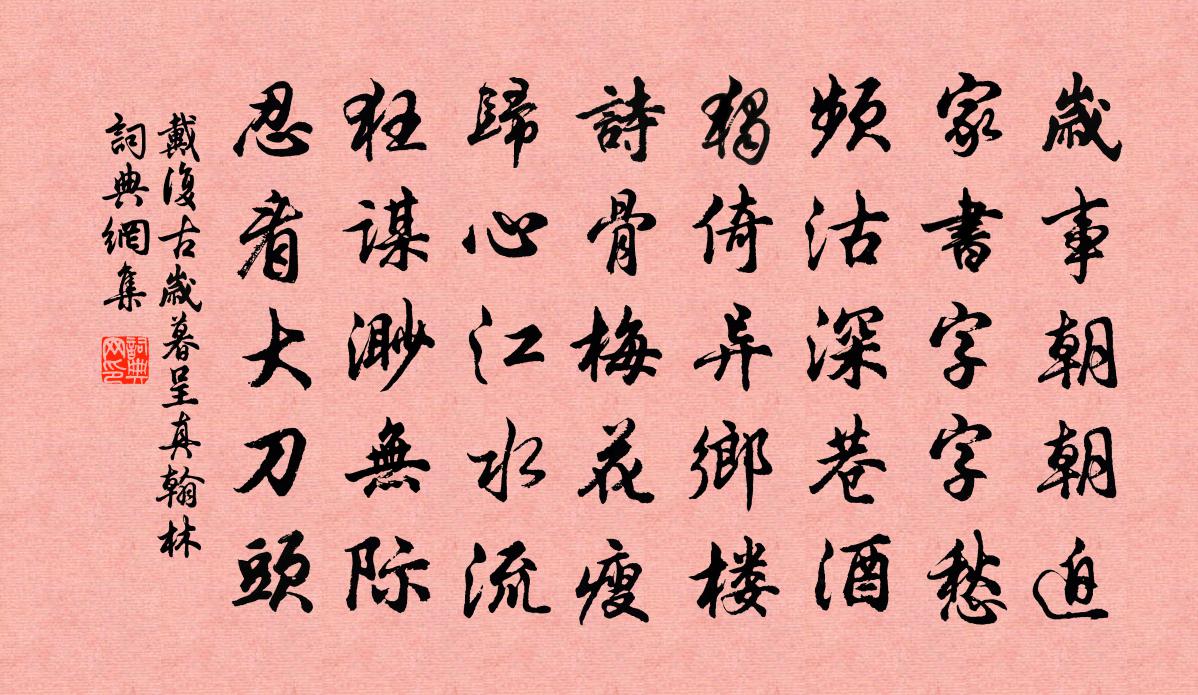 歲事朝朝迫
家書字字愁
頻沽深巷酒
獨倚异鄉楼
詩骨梅花瘦
歸心江水流
狂謀渺無际
忍看大刀頭
戴復古歲暮呈真翰林
詞典網集
詞典网印